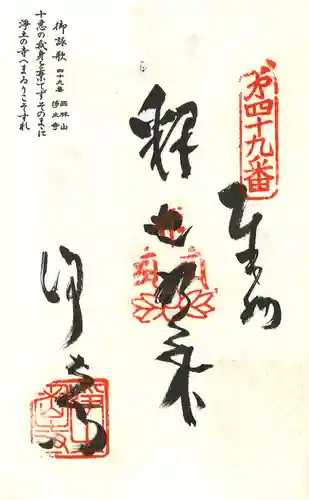 第四十九番
奉納
釈迦如来
浄土寺
御詠歌 四十九番 西林山 浄土寺
十悪の我身を棄てずそのまゝに
浄土の寺へまゐりこそすれ